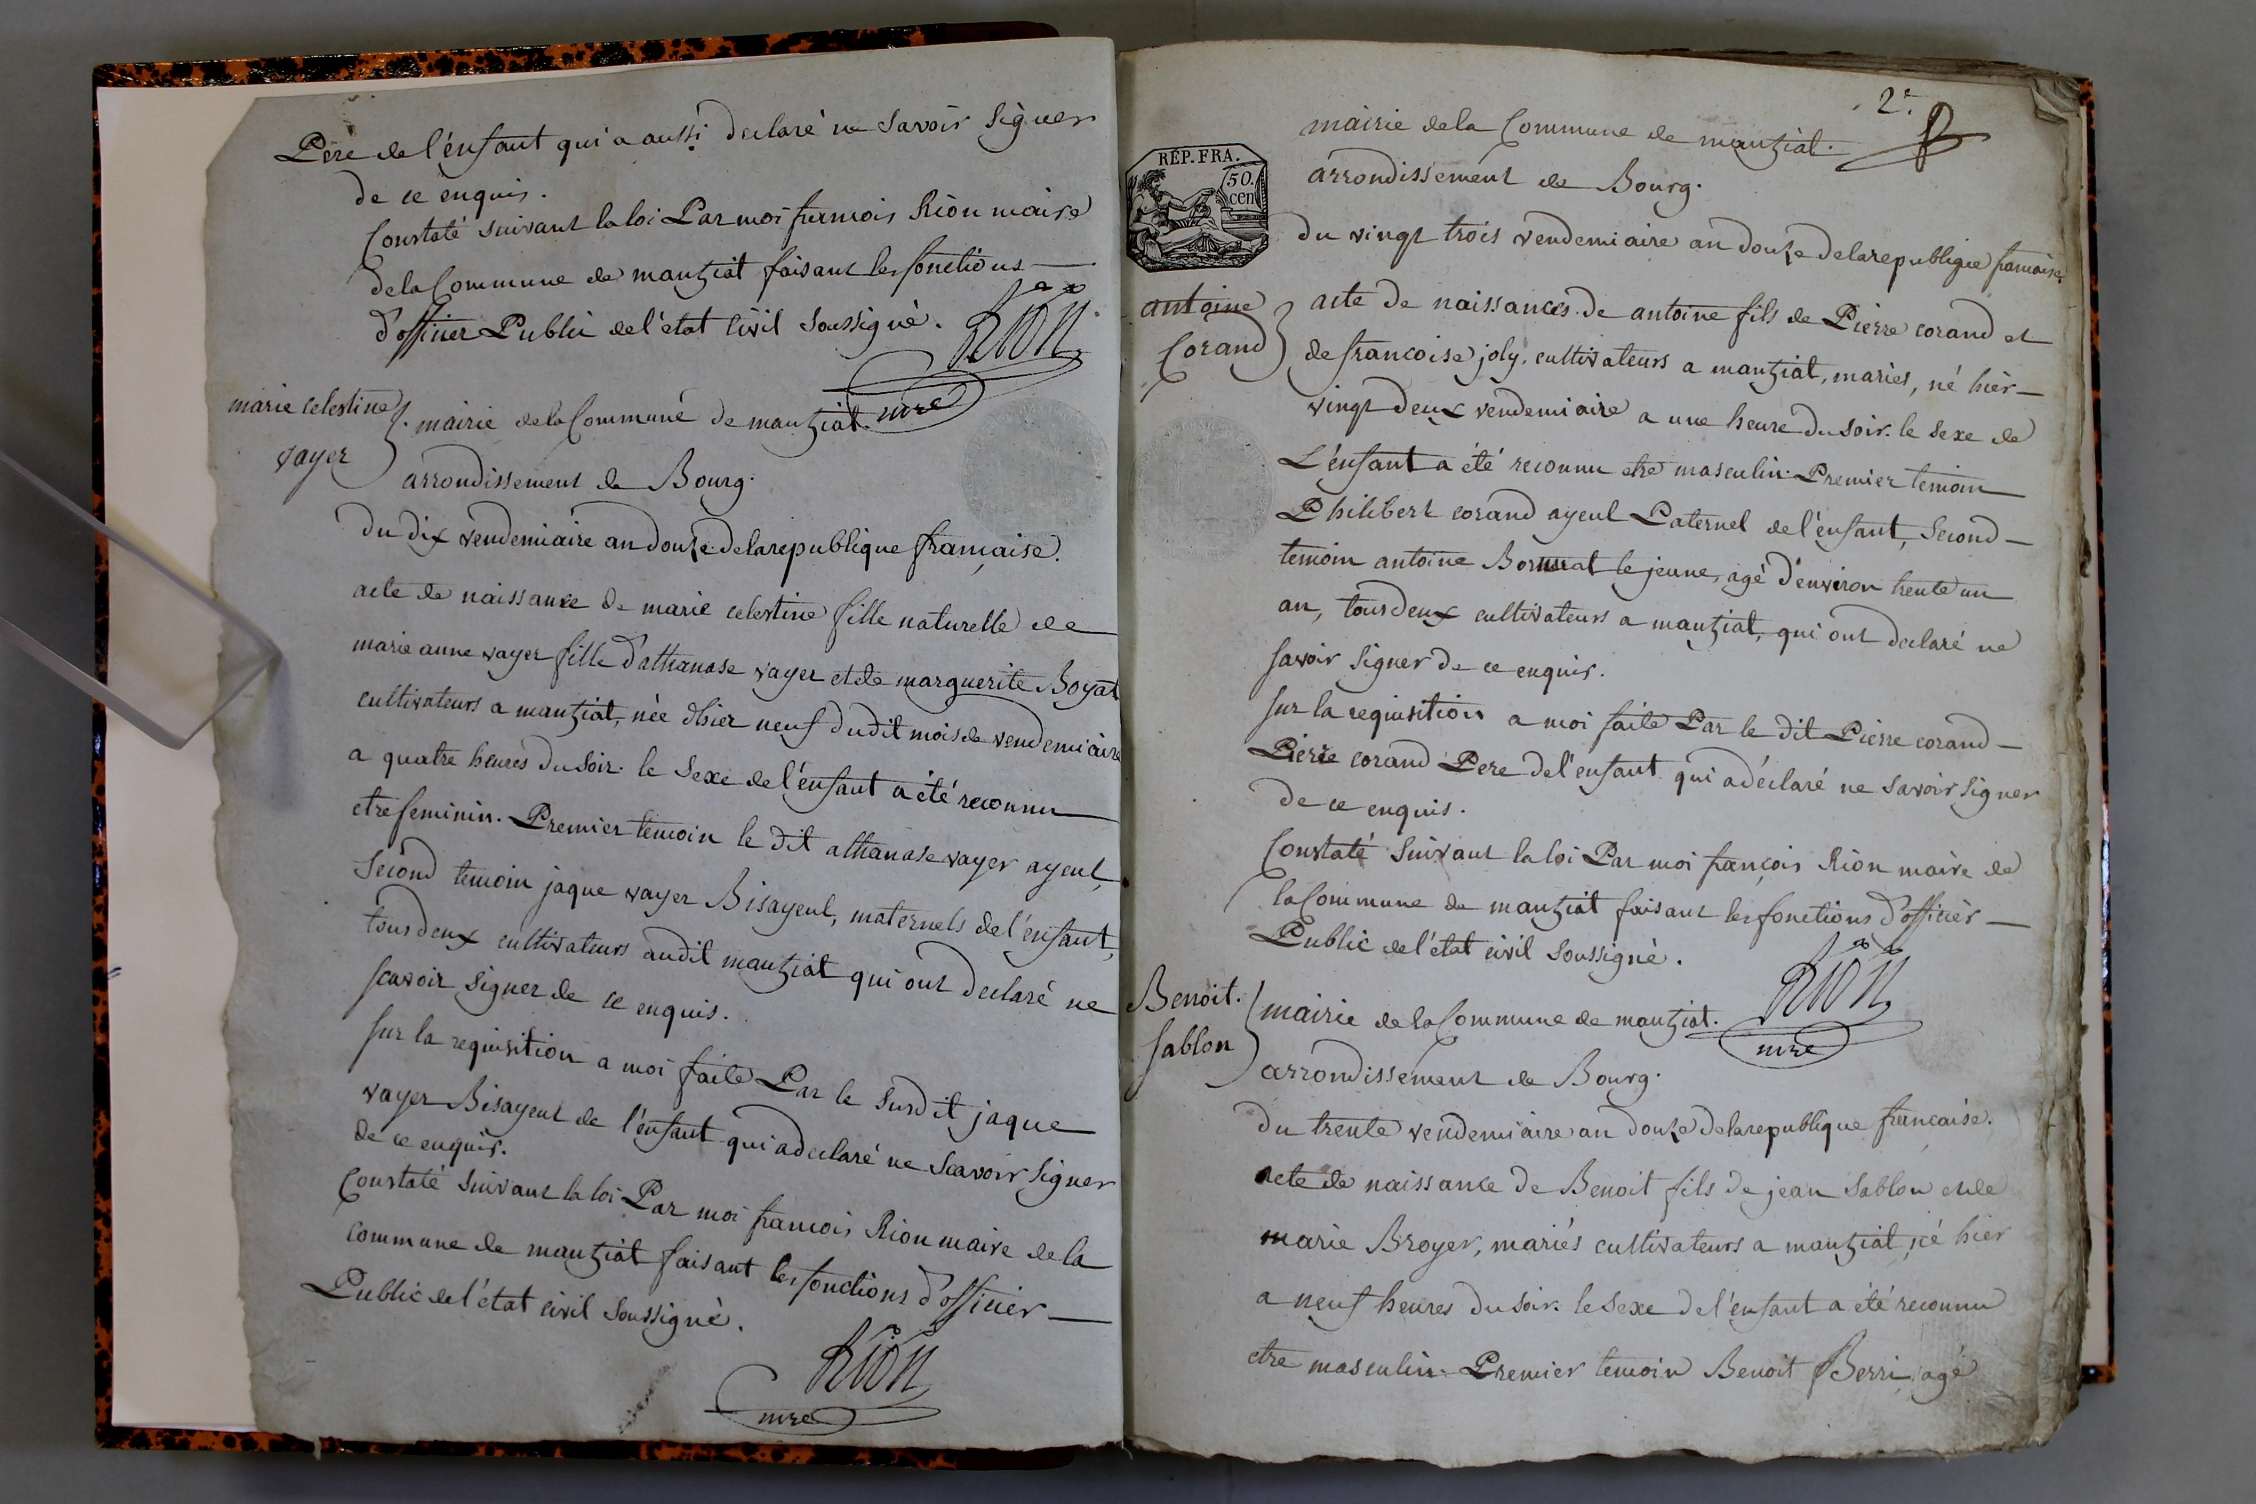 Pere de l'énfant qui a aussi declaré ne savoir signer
de ce enquis.
Constaté suivant la loi Par moi francois Rion maire
de la Commune de mantziat faisant les fonctions
d'officier Public de l'état Civil soussigné.
Rion
mre
marie celestine
vayer
mairie de la Commune de mantziat.
arrondissement de Bourg.
du dix vendemiaire an douze de la republique française.
acte de naissance de marie celestine fille naturelle de
marie anne vayer fille d'athanase vayer et de marguerite Boyat
cultivateurs a mantziat, née d'hier neuf du dit mois de vendemiaire
a quatre heures du soir. le sexe de l'énfant a été reconnu
etre feminin. Premier temoin le dit athanase vayer ayeul,
second temoin jaque vayer Bisayeul, maternels de l'énfant,
tous deux cultivateurs audit mantziat qui ont declaré ne
scavoir signer de ce enquis.
sur la requisition a moi faite Par le susdit jaque
vayer Bisayeul de l'énfant qui a declaré ne scavoir signer
de ce enquis.
Constaté suivant la loi Par moi francois Rion maire de la
commune de mantziat faisant les fonctions d'officier
Public de l'état civil soussigné.
Rion
mre
2e.
mairie de la Commune de mantziat.
arrondissement de Bourg.
RÉP. FRA.
50.
cen
du vingt trois vendemiaire an douze de la republique francaise
antoine
Corand
acte de naissances de antoine fils de Pierre corand et
de francoise joly, cultivateurs a mantziat, mariés, né hier
vingt deux vendemiaire a une heure du soir. le sexe de
L'énfant a été reconnu etre masculin. Premier temoin
Philibert corand ayeul Paternel de l'énfant, second
temoin antoine le jeune, agé d'environ trente un
an, tous deux cultivateurs a mantziat, qui ont declaré ne
savoir signer de ce enquis.
sur la requisition a moi faite Par le dit Pierre corand
Pierre corand Pere de l'enfant qui a déclaré ne savoir signer
de ce enquis.
Constaté suivant la loi Par moi françois Rion maire de
la Commune de mantziat faisant les fonctions d'officièr
Public de l'état civil soussigné.
Rion
mre
Benoit.
sablon
mairie de la Commune de mantziat.
arrondissement de Bourg.
du trente vendemiaire an douze de la republique francaise.
acte de naissance de Benoit fils de jean sablon et de
marie Broyer, mariés cultivateurs a mantziat, né hier
a neuf heures du soir. le sexe de l'enfant a été reconnu
etre masculin. Premier temoin Benoit Berri, agé